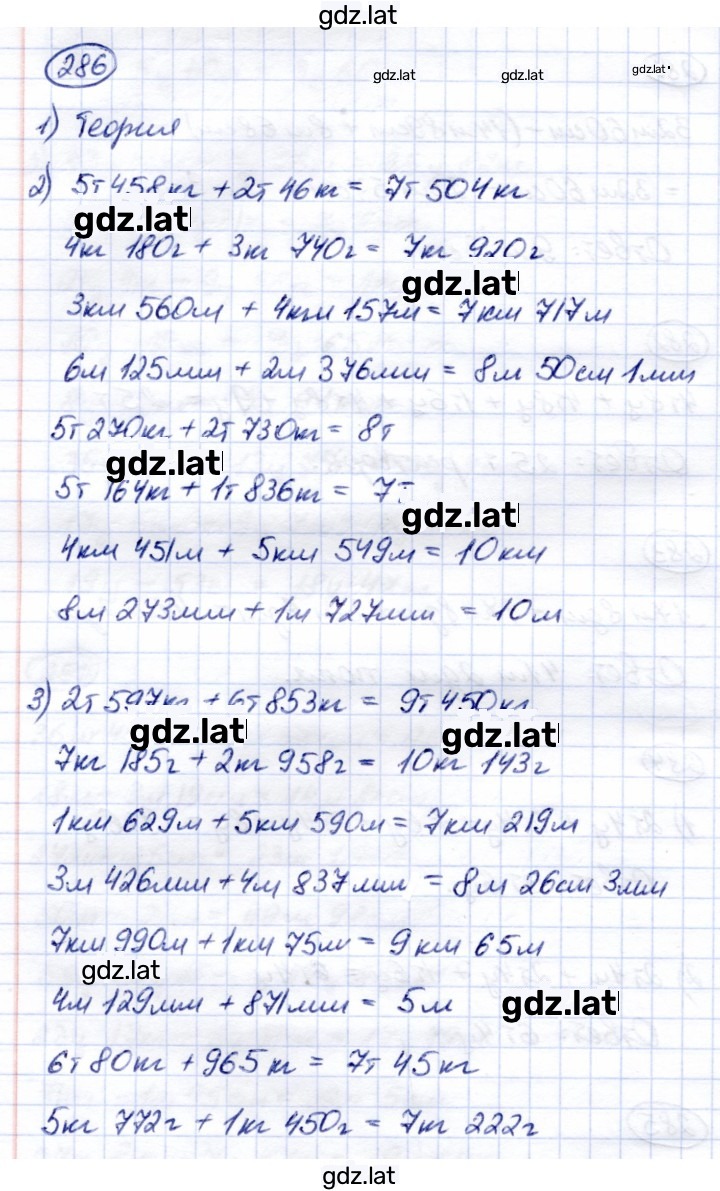 gdz.lat
286
gdz.lat gdz.lat gdz.lat
1) Теория
2) 5т 458кг + 2т 46кг = 7т 504кг
gdz.lat
4кг 180г + 3кг 740г = 7кг 920г
gdz.lat
3км 560м + 4км 157м = 7км 717м
6м 125мм + 2м 376мм = 8м 50см 1мм
5т 270кг + 2т 730кг = 8т
gdz.lat
5т 164кг + 1т 836кг = 7т
gdz.lat
4км 451м + 5км 549м = 10км
8м 273мм + 1м 727мм = 10м
3) 2т 597кг + 6т 853кг = 9т 450кг
gdz.lat gdz.lat
7кг 185г + 2кг 958г = 10кг 143г
1км 629м + 5км 590м = 7км 219м
3м 426мм + 4м 837мм = 8м 26см 3мм
7км 990м + 1км 75м = 9км 65м
gdz.lat
4м 129мм + 871мм = 5м
gdz.lat
6т 80кг + 965кг = 7т 45кг
5кг 772г + 1кг 450г = 7кг 222г
gdz.lat